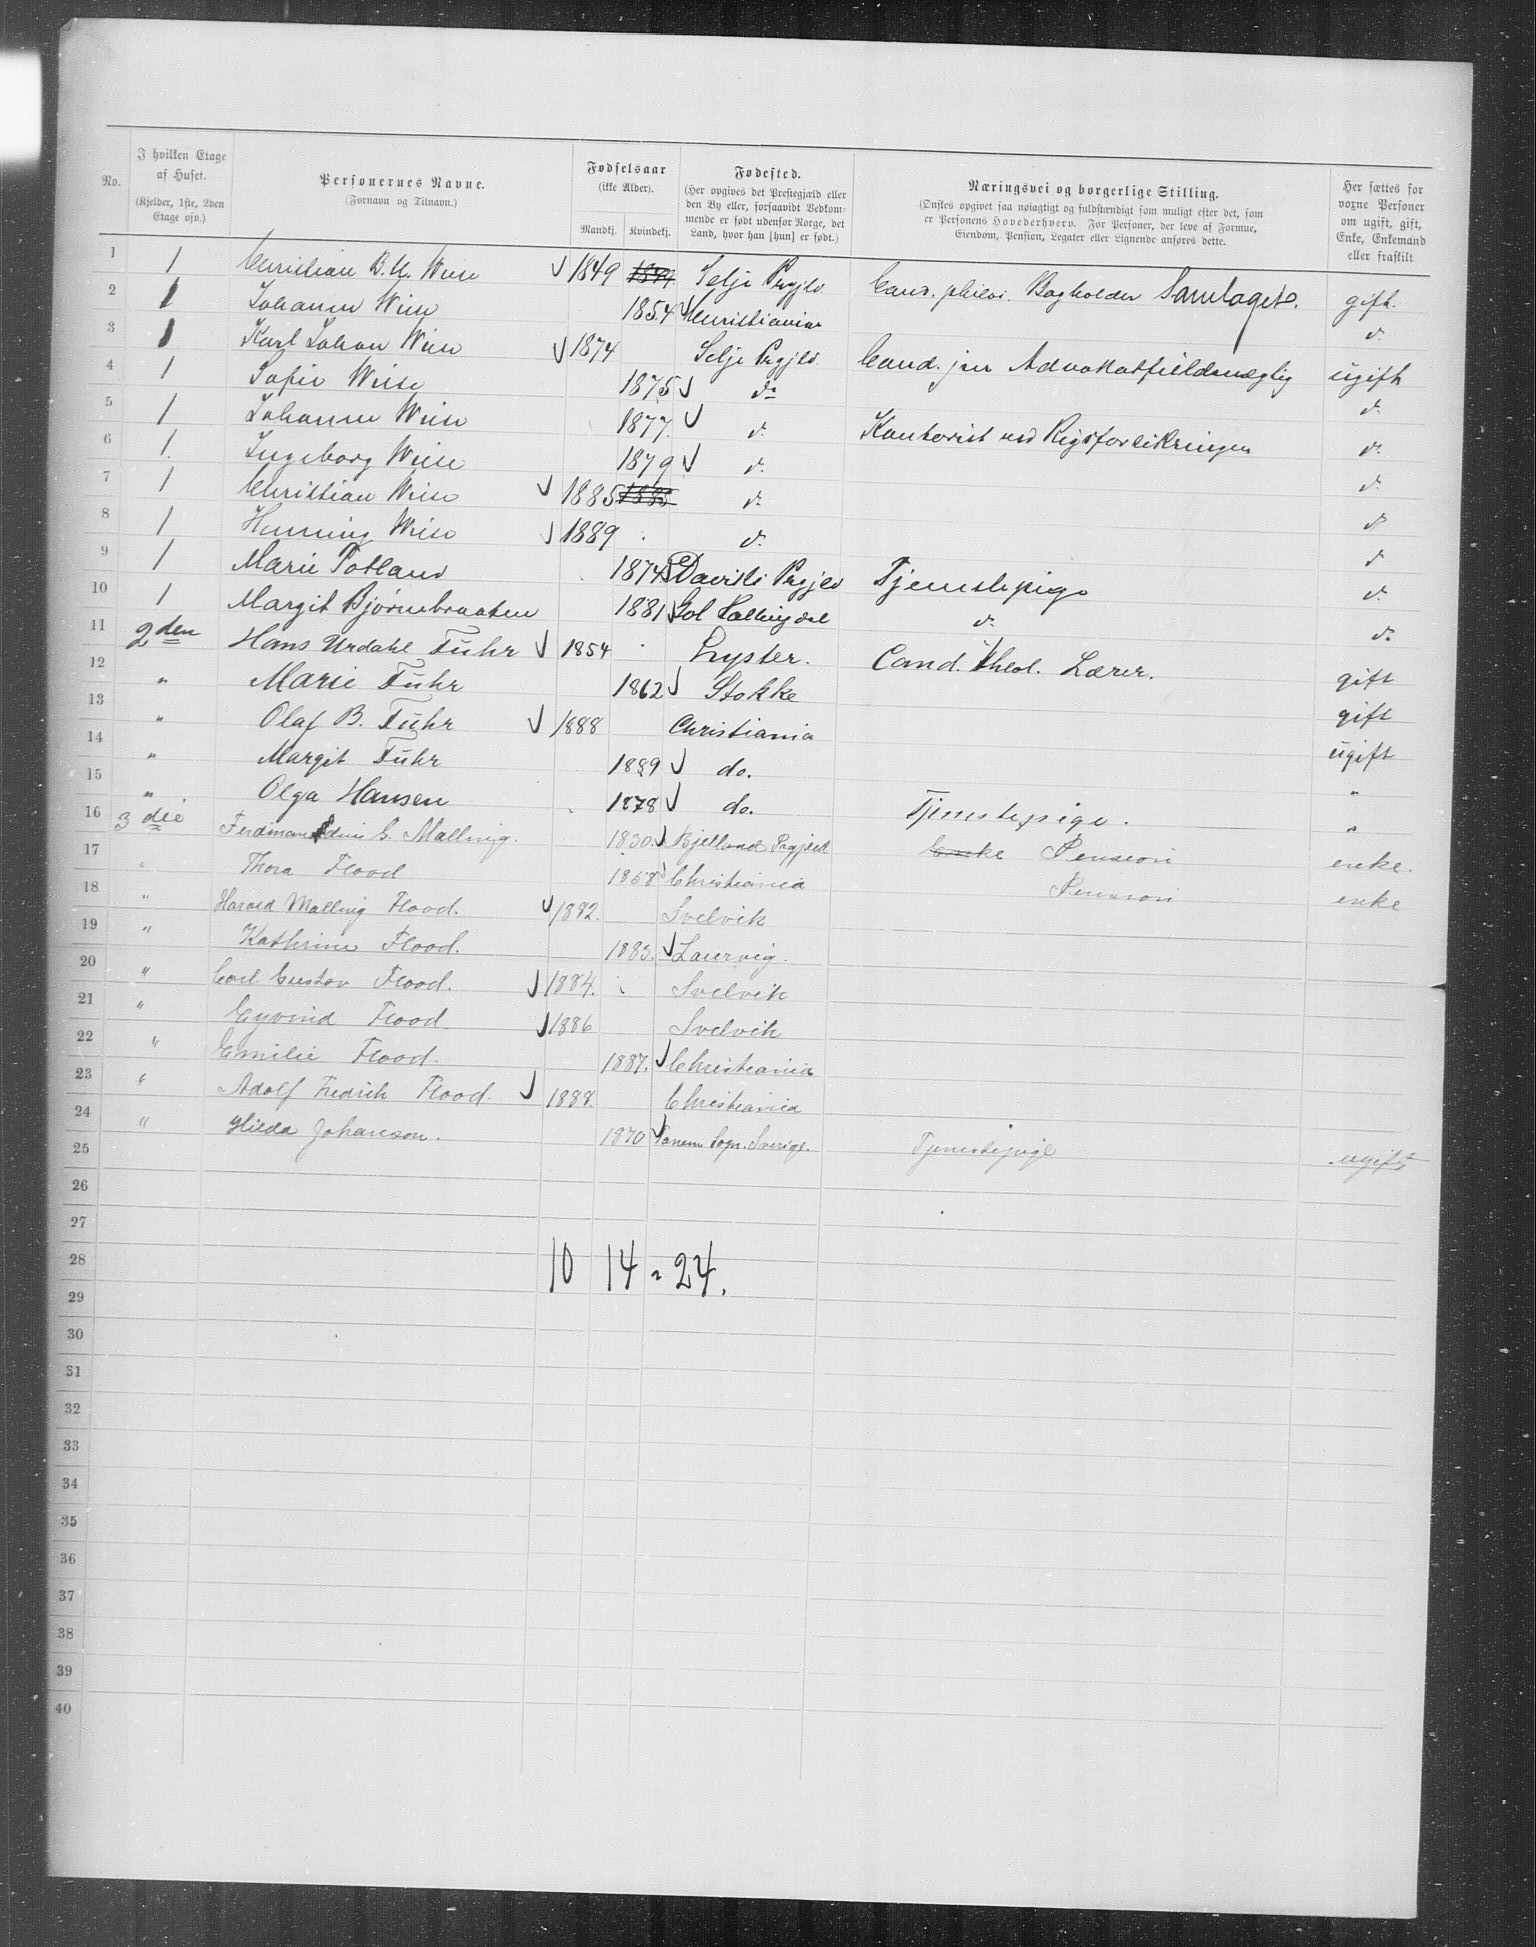 No.
I hvilken Etage af Huset.
(Kjelder, 1ste, 2den Etage osv.)
Personernes Navne.
(Fornavn og Tilnavn.)
Fødselsaar
(ikke Alder).
Mandkj. Kvindekj.
Fødested.
(Her opgives det Prestegjæld eller
den By eller, forsaavidt Vedkom-
mende er født udenfor Norge, det
Land, hvor han [hun] er født.)
Næringsvei og borgerlige Stilling.
(Ønskes opgivet saa nøiagtigt og fuldstændigt som muligt efter det, som
er Personens Hovederhverv. For Personer, der leve af Formue,
Eiendom, Pension, Legater eller Lignende anføres dette.
Her sættes for
voxne Personer
om ugift, gift,
Enke, Enkemand
eller fraskilt
1 1 Christian B. U. Wiese 1849 1849 Selje Prgjld. Cand. philos. Bogholder Samlaget. gift.
2 1 Johanne Wiese 1854 Christiania d.
3 1 Karl Johan Wiese 1874 Selje Prgjld. Cand. jur Advokatfuldmægtig ugift
4 1 Sofie Wiese 1875 do d.
5 1 Johanne Wiese 1877. d. Kontorist ved Rigsforsikringen d.
6 1. Ingeborg Wiese 1879 d. d.
7 1 Christian Wiese 1885 1885 d. d
8 1 Henning Wiese 1889 d. d
9 1 Marie Totland 1874 Daviks Prgjld Tjenestepige d.
10 1 Margit Bjørnebraaten 1881 Gol Hallingdal d. d.
11 2den Hans Urdahl Fuhr 1854 Lyster. Cand. theol. Lærer. gift
12 " Marie Fuhr 1862 Stokke gift
13 " Olaf B. Fuhr 1888 Christiania ugift
14 " Margit Fuhr 1889 do. "
15 " Olga Hansen 1878 do. Tjenestepige. "
16 3die Ferdinandine G. Malling. 1830. Bjelland Prgjeld Enke Pension enke.
17 " Thora Flood 1858 Christiania Pension enke
18 " Harald Malling Flood. 1882. Svelvik
19 " Kathrine Flood. 1883. Laurvig.
20 " Carl Gustav Flood. 1884. Svelvik
21 " Eyvind Flood. 1886 Svelvik
22 " Emilie Flood. 1887. Christiania
23 " Adolf Fredrik Flood. 1888. Christiania
24 " Hilda Johanson. 1870 Sogn. Sverige. Tjenestepige ugift
25
26
27
28 10 14 = 24.
29
30
31
32
33
34
35
36
37
38
39
40